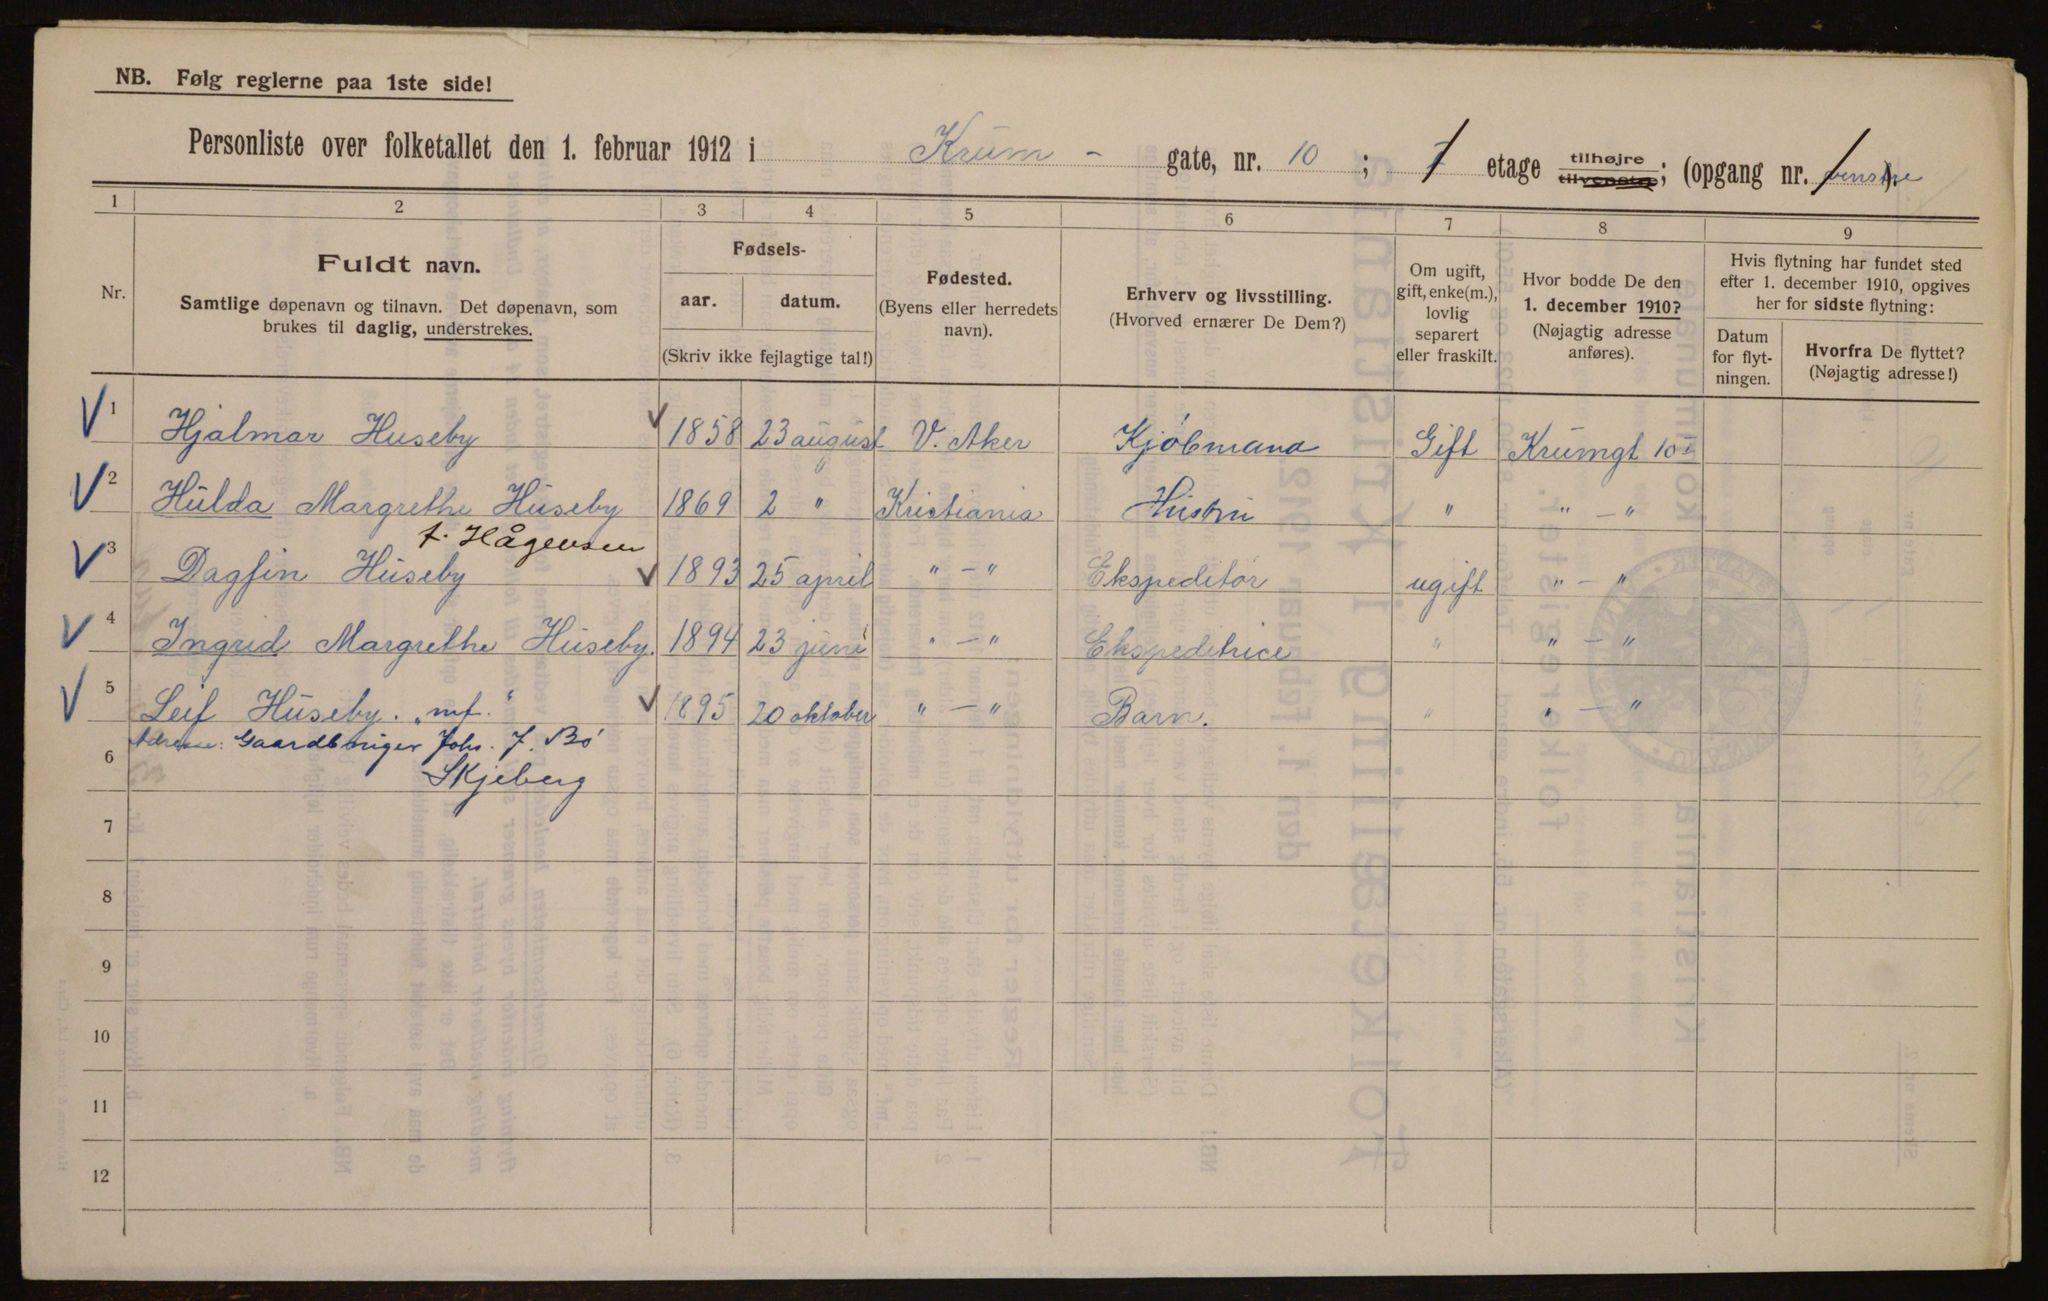 NB. Følg reglerne paa 1ste side!
Personliste over folketallet den 1. februar 1912 i Krum - gate, nr. 10 ; 1 etage tilhøjre tilvenstre; (opgang nr. venstre ).
1 2 3 4 5 6 7 8 9
Nr.
Fuldt navn.
Samtlige døpenavn og tilnavn. Det døpenavn, som
brukes til daglig, understrekes.
Fødsels-
aar. datum.
(Skriv ikke fejlagtige tal!)
Fødested.
(Byens eller herredets
navn).
Erhverv og livsstilling.
(Hvorved ernærer De Dem?)
Om ugift,
gift, enke(m.),
lovlig
separert
eller fraskilt.
Hvor bodde De den
1. december 1910?
(Nøjagtig adresse
anføres).
Hvis flytning har fundet sted
efter 1. december 1910, opgives
her for sidste flytning:
Datum
for flyt-
ningen.
Hvorfra De flyttet?
(Nøjagtig adresse!)
1 Hjalmar Huseby 1858 23 august V. Aker Kjøbmand Gift Krumgt 10
2 Hulda Margrethe Huseby 1869 2 " Kristiania Hustru " " — "
f. Hågensen
3 Dagfin Huseby 1893 25 april " — " Ekspeditør ugift " — "
4 Ingrid Margrethe Huseby. 1894 23 juni " — " Ekspeditrice " " — "
5 Leif Huseby. "mf." 1895 20 oktober " — " Barn. " " — "
Adresse: Gaardbruger Johs. J. Bø
6 Skjeberg
7
8
9
10
11
12